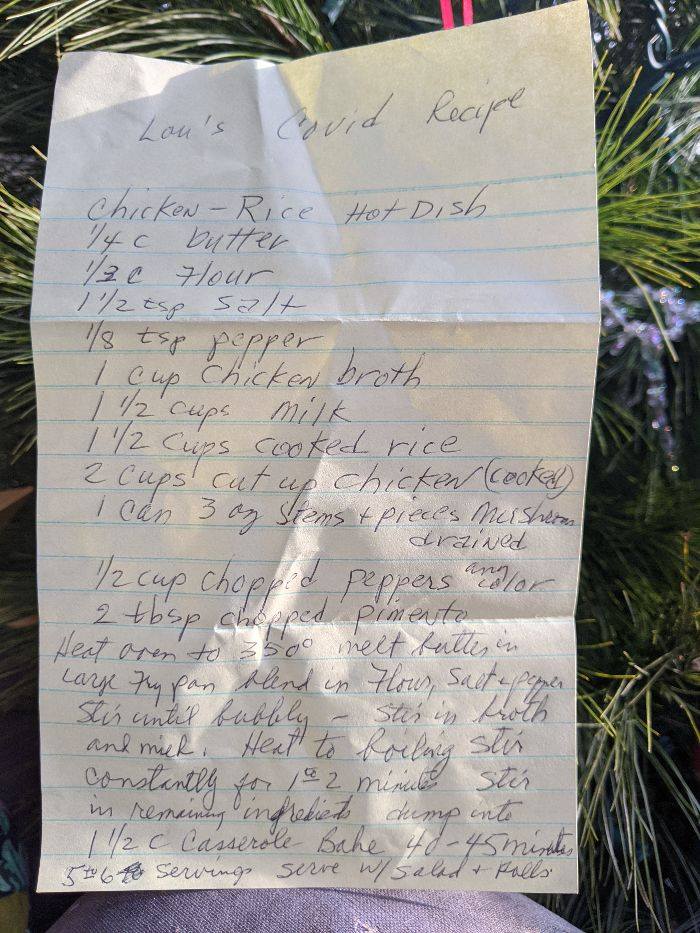 Lou's Covid Recipe
Chicken-Rice Hot Dish
1/4 c butter
1/3 c flour
1 1/2 tsp salt
1/8 tsp pepper
1 cup chicken broth
1 1/2 cups milk
1 1/2 cups cooked rice
2 cups cut up chicken (cooked)
1 can 3 oz stems + pieces mushroom
drained
1/2 cup chopped peppers any color
2 tbsp chopped pimento
Heat oven to 350° melt butter in
Large Fry pan blend in Flour, Salt + pepper
Stir until bubbly - Stir in broth
and milk. Heat to boiling stir
constantly for 1 to 2 minutes Stir
in remaining ingredients dump into
1 1/2 c Casserole Bake 40-45 minutes
5 to 6 servings serve w/ Salad + Rolls